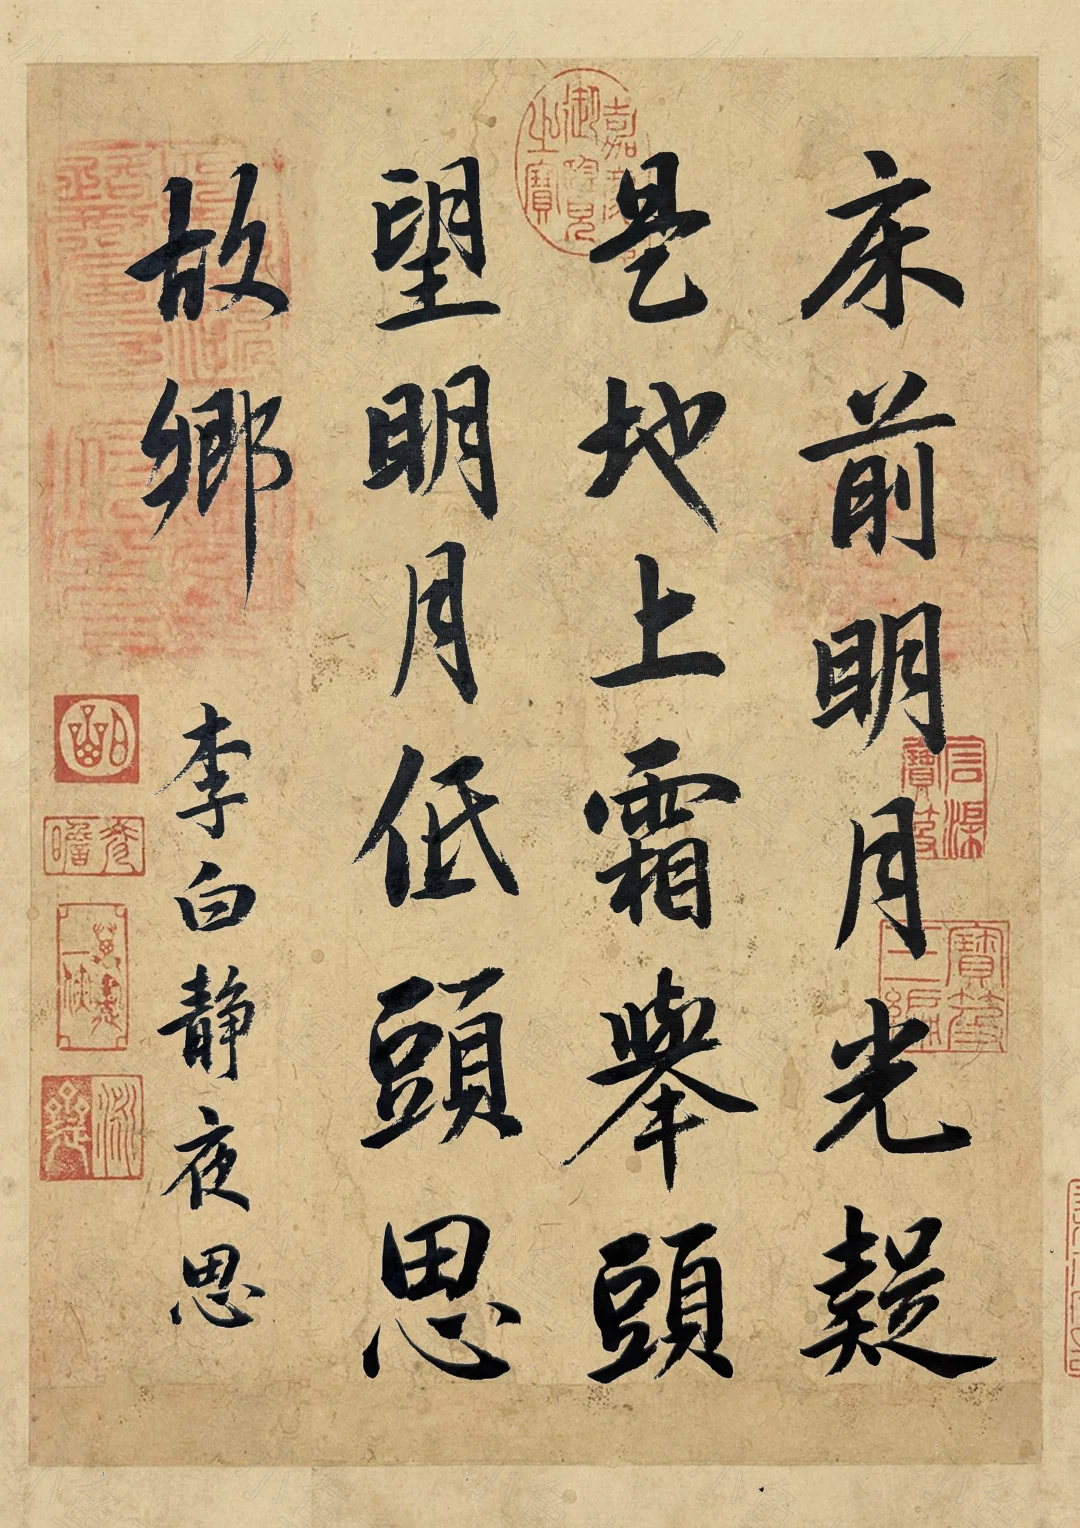 床前明月光疑
是地上霜舉頭
望明月低頭思
故鄉
李白靜夜思